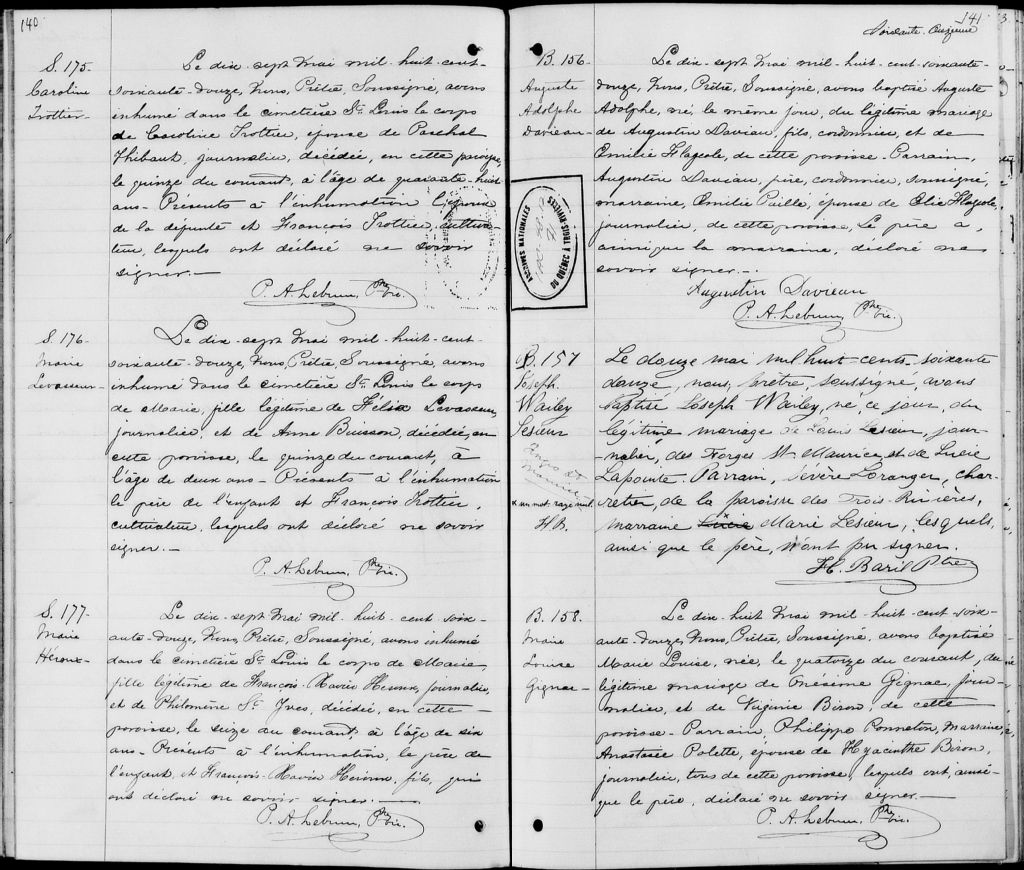 140
S. 175.
Caroline
Trottier
Le dix-sept Mai mil-huit-cent-
soixante-douze, Nous, Prêtre, Soussigné, avons
inhumé dans le cimetière St. Louis le corps
de Caroline Trottier, épouse de Paschal
Thibaut, journalier, décédée, en cette paroisse,
le quinze du courant, à l'âge de quarante-huit
ans. Présents à l'inhumation l'époux
de la défunte et François Trottier, cultiva-
teur, lesquels ont déclaré ne savoir
signer.—
P. A. Lebrun, Ptre. vic.
S. 176.
Marie
Levasseur
Le dix-sept Mai mil-huit-cent-
soixante-douze, Nous, Prêtre, Soussigné, avons
inhumé dans le cimetière St. Louis le corps
de Marie, fille légitime de Félix Levasseur,
journalier, et de Anne Buisson, décédée, en
cette paroisse, le quinze du courant, à
l'âge de deux ans. Présents à l'inhumation
le père de l'enfant et François Trottier,
cultivateur, lesquels ont déclaré ne savoir
signer.—
P. A. Lebrun, Ptre. vic.
S. 177.
Marie
Héroux
Le dix-sept Mai mil-huit-cent soix-
ante-douze, Nous, Prêtre, Soussigné, avons inhumé
dans le cimetière St. Louis le corps de Marie,
fille légitime de François-Xavier Héroux, journalier,
et de Philomène St. Yves, décédée, en cette
paroisse, le seize du courant, à l'âge de six
ans. Présents à l'inhumation, le père de
l'enfant, et François-Xavier Héroux, fils, qui
ont déclaré ne savoir signer.—
P. A. Lebrun, Ptre. vic.
141
Soixante-Onzième
B. 156.
Auguste
Adolphe
Davieau
Le dix-sept Mai mil-huit-cent-soixante-
douze, Nous, Prêtre, Soussigné, avons baptisé Auguste
Adolphe, né, le même jour, du légitime mariage
de Augustin Daviau, fils, cordonnier, et de
Emilie Flageole, de cette paroisse. Parrain,
Augustin Daviau, père, cordonnier, soussigné,
marraine, Emilie Paille, épouse de Elie Flageole,
journalier, de cette paroisse, Le père a,
ainsi que la marraine, déclaré ne
savoir signer.—
Augustin Davieau
P. A. Lebrun, Ptre. vic.
ARCHIVES NATIONALES
DU QUÉBEC À TROIS-RIVIÈRES
B. 157
Joseph
Wailey
Lesieur
x un mot rayé nul.
H. B.
Le douze mai mil huit-cents-soixante
douze, nous, prêtre, soussigné, avons
baptisé Joseph Wailey, né, ce jour, du
légitime mariage de Louis Lesieur, jour-
nalier, des Forges St. Maurice, et de Lucie
Lapointe. Parrain, Sévère Loranger, char-
retier, de la paroisse des Trois-Rivières,
marraine Lucie Marie Lesieur, lesquels,
ainsi que le père, n'ont pu signer.
H. Baril Ptre
B. 158.
Marie
Louise
Gignac
Le dix-huit Mai mil-huit-cent-soix-
ante-douze, Nous, Prêtre, Soussigné, avons baptisé
Marie Louise, née, le quatorze du courant, du
légitime mariage de Onésime Gignac, jour-
nalier, et de Virginie Biron, de cette
paroisse. Parrain, Philippe Panneton, Marraine,
Anastasie Polette, épouse de Hyacinthe Biron,
journalier, tous de cette paroisse, lesquels ont, ainsi
que le père, déclaré ne savoir signer.—
P. A. Lebrun, Ptre. vic.